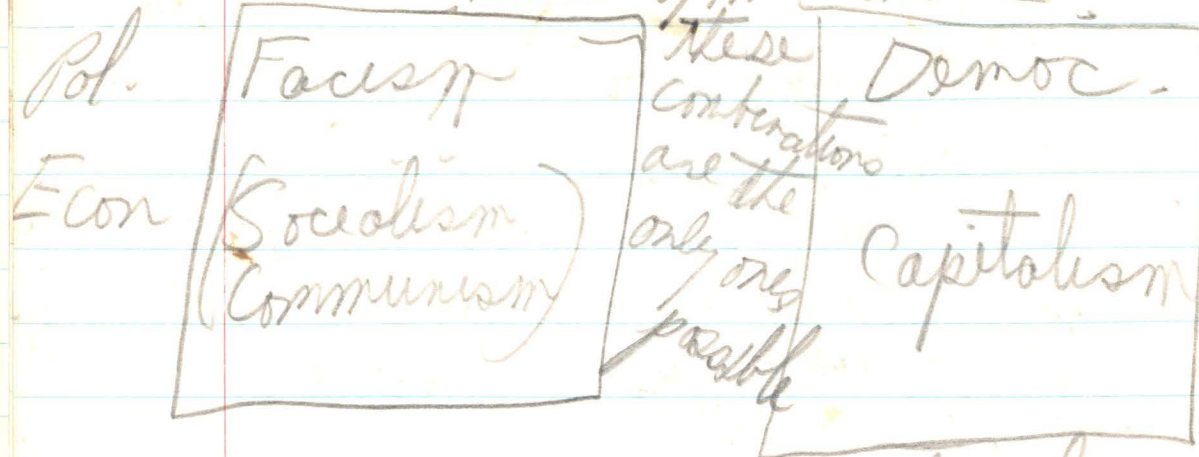 Pol.
Facism
Econ
(Socialism
(Communism)
these
combinations
are the
only ones
possible
Democ.
Capitalism